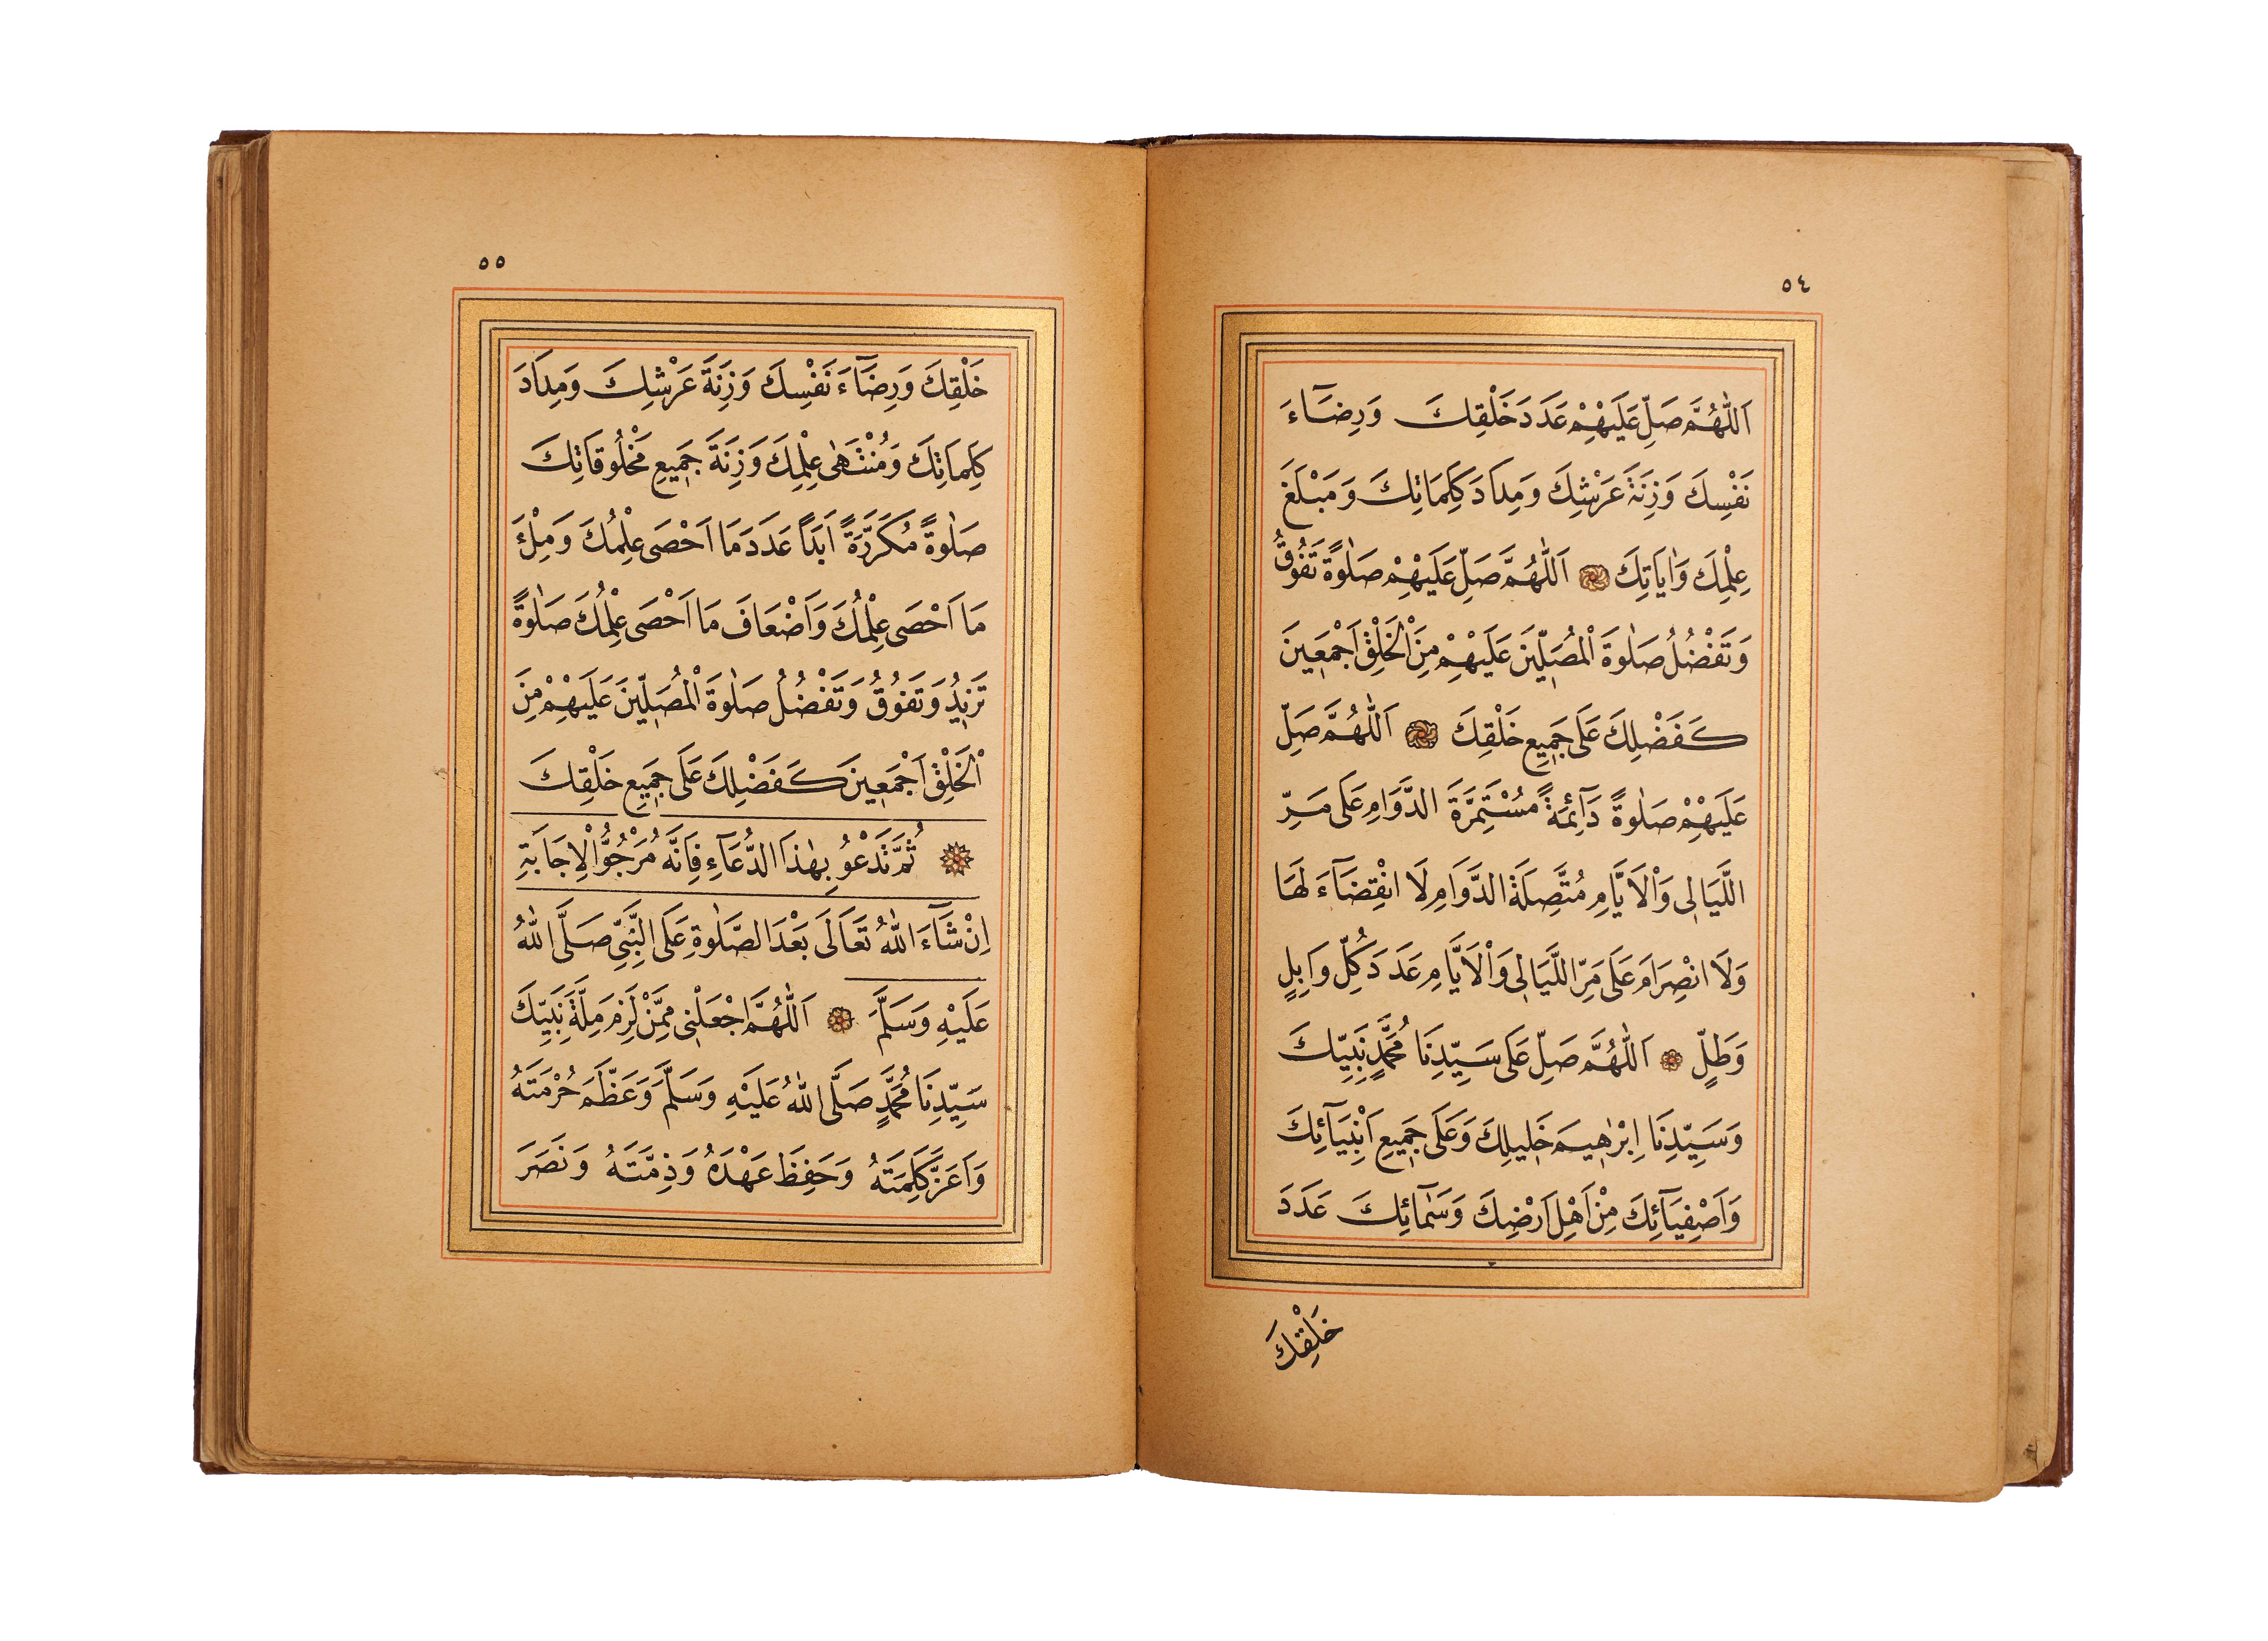 ٥٤
اَللّٰهُمَّ صَلِّ عَلَيْهِمْ عَدَدَ خَلْقِكَ وَرِضَآءَ
نَفْسِكَ وَزِنَةَ عَرْشِكَ وَمِدَادَ كَلِمَاتِكَ وَمَبْلَغَ
عِلْمِكَ وَاٰيَاتِكَ اَللّٰهُمَّ صَلِّ عَلَيْهِمْ صَلٰوةً تَفُوقُ
وَتَفْضُلُ صَلٰوةَ الْمُصَلِّينَ عَلَيْهِمْ مِنَ الْخَلْقِ اَجْمَعِينَ
كَفَضْلِكَ عَلَى جَمِيعِ خَلْقِكَ اَللّٰهُمَّ صَلِّ
عَلَيْهِمْ صَلٰوةً دَآئِمَةً مُسْتَمِرَّةَ الدَّوَامِ عَلَى مَرِّ
اللَّيَالِى وَالْاَيَّامِ مُتَّصِلَةَ الدَّوَامِ لَا انْقِضَآءَ لَهَا
وَلَا انْصِرَامَ عَلَى مَرِّ اللَّيَالِى وَالْاَيَّامِ عَدَدَ كُلِّ وَابِلٍ
وَطَلٍّ اَللّٰهُمَّ صَلِّ عَلَى سَيِّدِنَا مُحَمَّدٍ نَبِيِّكَ
وَسَيِّدِنَا اِبْرٰهِيمَ خَلِيلِكَ وَعَلَى جَمِيعِ اَنْبِيَآئِكَ
وَاَصْفِيَآئِكَ مِنْ اَهْلِ اَرْضِكَ وَسَمَآئِكَ عَدَدَ
خَلْقِكَ
٥٥
خَلْقِكَ وَرِضَآءَ نَفْسِكَ وَزِنَةَ عَرْشِكَ وَمِدَادَ
كَلِمَاتِكَ وَمُنْتَهٰى عِلْمِكَ وَزِنَةَ جَمِيعِ مَخْلُوقَاتِكَ
صَلٰوةً مُكَرَّرَةً اَبَدًا عَدَدَ مَا اَحْصَى عِلْمُكَ وَمِلْءَ
مَا اَحْصَى عِلْمُكَ وَاَضْعَافَ مَا اَحْصَى عِلْمُكَ صَلٰوةً
تَزِيدُ وَتَفُوقُ وَتَفْضُلُ صَلٰوةَ الْمُصَلِّينَ عَلَيْهِمْ مِنَ
الْخَلْقِ اَجْمَعِينَ كَفَضْلِكَ عَلَى جَمِيعِ خَلْقِكَ
ثُمَّ تَدْعُو بِهٰذَا الدُّعَآءِ فَاِنَّهُ مَرْجُوُّ الْاِجَابَةِ
اِنْ شَآءَ اللّٰهُ تَعَالَى بَعْدَ الصَّلٰوةِ عَلَى النَّبِيِّ صَلَّى اللّٰهُ
عَلَيْهِ وَسَلَّمَ اَللّٰهُمَّ اجْعَلْنِى مِمَّنْ لَزِمَ مِلَّةَ نَبِيِّكَ
سَيِّدِنَا مُحَمَّدٍ صَلَّى اللّٰهُ عَلَيْهِ وَسَلَّمَ وَعَظَّمَ حُرْمَتَهُ
وَاَعَزَّ كَلِمَتَهُ وَحَفِظَ عَهْدَهُ وَذِمَّتَهُ وَنَصَرَ